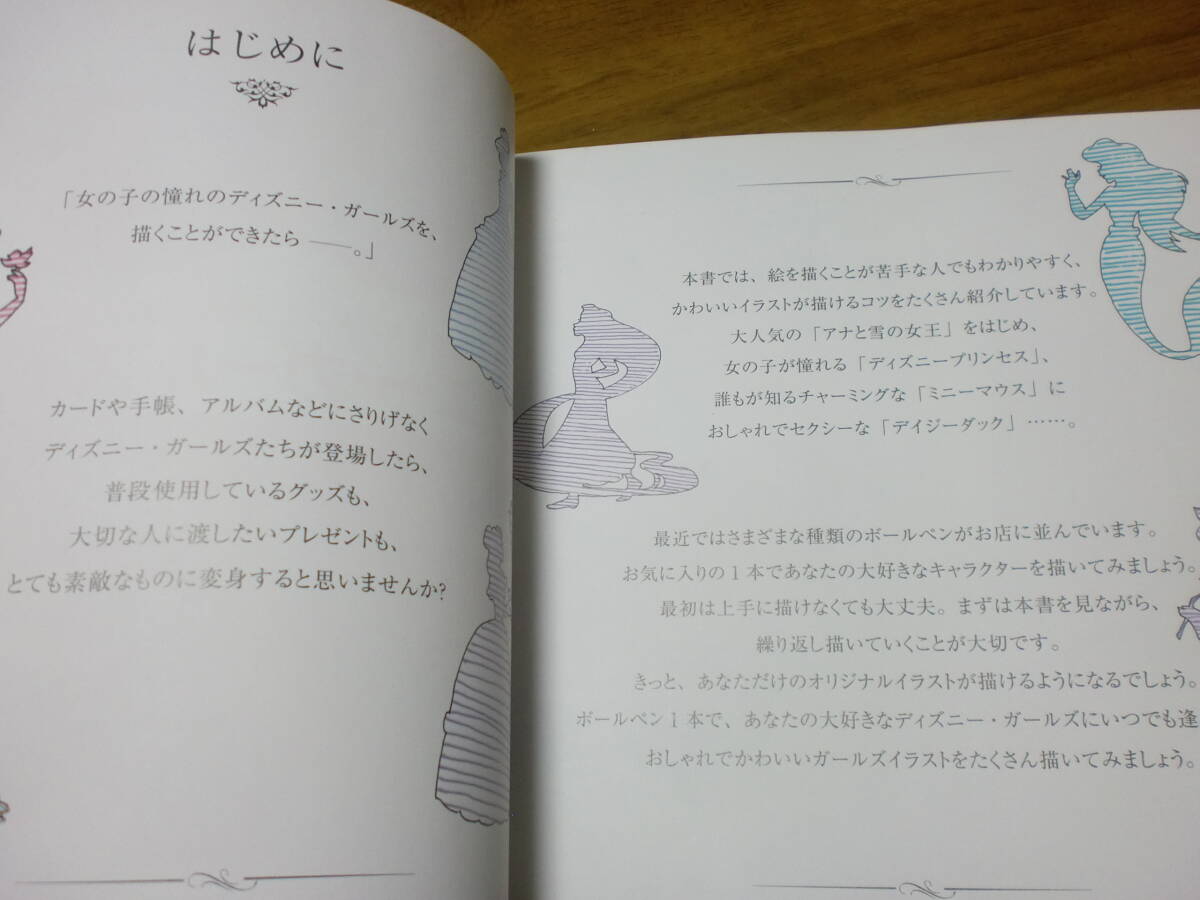 はじめに
「女の子の憧れのディズニー・ガールズを、
描くことができたら ――。」
カードや手帳、アルバムなどにさりげなく
ディズニー・ガールズたちが登場したら、
普段使用しているグッズも、
大切な人に渡したいプレゼントも、
とても素敵なものに変身すると思いませんか?
本書では、絵を描くことが苦手な人でもわかりやすく、
かわいいイラストが描けるコツをたくさん紹介しています。
大人気の「アナと雪の女王」をはじめ、
女の子が憧れる「ディズニープリンセス」、
誰もが知るチャーミングな「ミニーマウス」に
おしゃれでセクシーな「デイジーダック」……。
最近ではさまざまな種類のボールペンがお店に並んでいます。
お気に入りの1本であなたの大好きなキャラクターを描いてみましょう。
最初は上手に描けなくても大丈夫。まずは本書を見ながら、
繰り返し描いていくことが大切です。
きっと、あなただけのオリジナルイラストが描けるようになるでしょう。
ボールペン1本で、あなたの大好きなディズニー・ガールズにいつでも逢
おしゃれでかわいいガールズイラストをたくさん描いてみましょう。